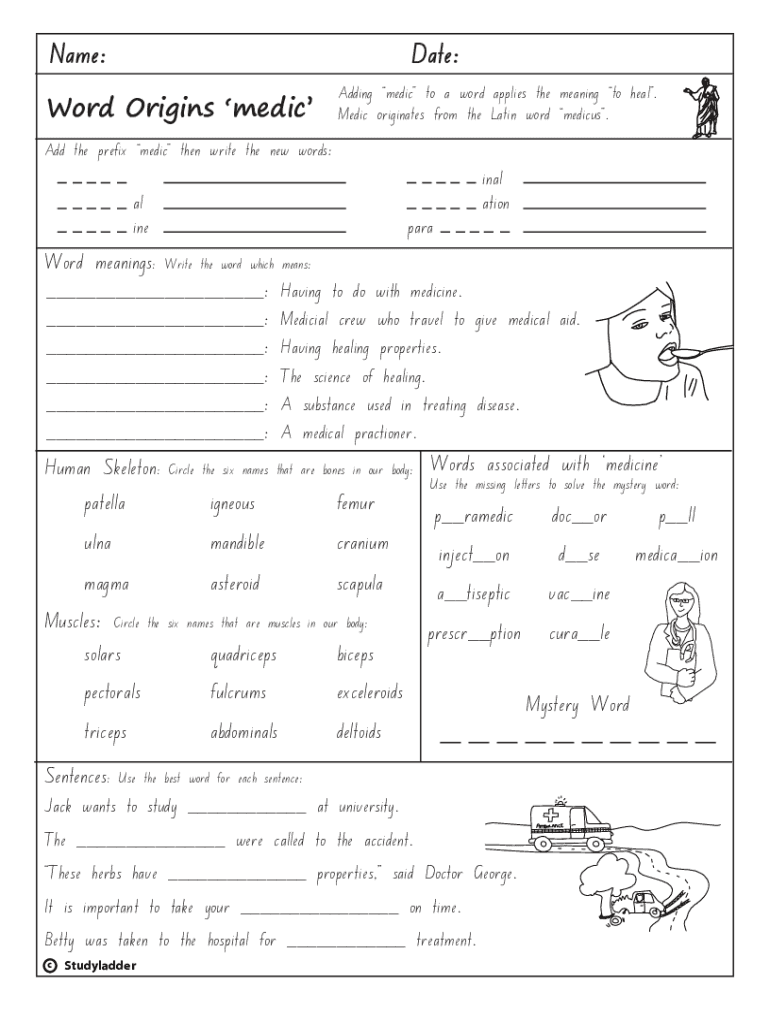 Name: Date:
Word Origins ‘medic’
Adding "medic" to a word applies the meaning "to heal".
Medic originates from the Latin word "medicus".
Add the prefix "medic" then write the new words:
_ _ _ _ _ ____________ _ _ _ _ _ inal ____________
_ _ _ _ _ al ____________ _ _ _ _ _ ation ____________
_ _ _ _ _ ine ____________ para _ _ _ _ _ ____________
Word meanings: Write the word which means:
____________: Having to do with medicine.
____________: Medicial crew who travel to give medical aid.
____________: Having healing properties.
____________: The science of healing.
____________: A substance used in treating disease.
____________: A medical practioner.
Human Skeleton: Circle the six names that are bones in our body:
patella igneous femur
ulna mandible cranium
magma asteroid scapula
Muscles: Circle the six names that are muscles in our body:
solars quadriceps biceps
pectorals fulcrums exceleroids
triceps abdominals deltoids
Words associated with 'medicine'
Use the missing letters to solve the mystery word:
p__ramedic doc__or p__ll
inject__on d__se medica__ion
a__tiseptic vac__ine
prescr__ption cura__le
Mystery Word
_ _ _ _ _ _ _ _ _ _ _
Sentences: Use the best word for each sentence:
Jack wants to study ____________ at university.
The ____________ were called to the accident.
"These herbs have ____________ properties," said Doctor George.
It is important to take your ____________ on time.
Betty was taken to the hospital for ____________ treatment.
AMBULANCE
© Studyladder